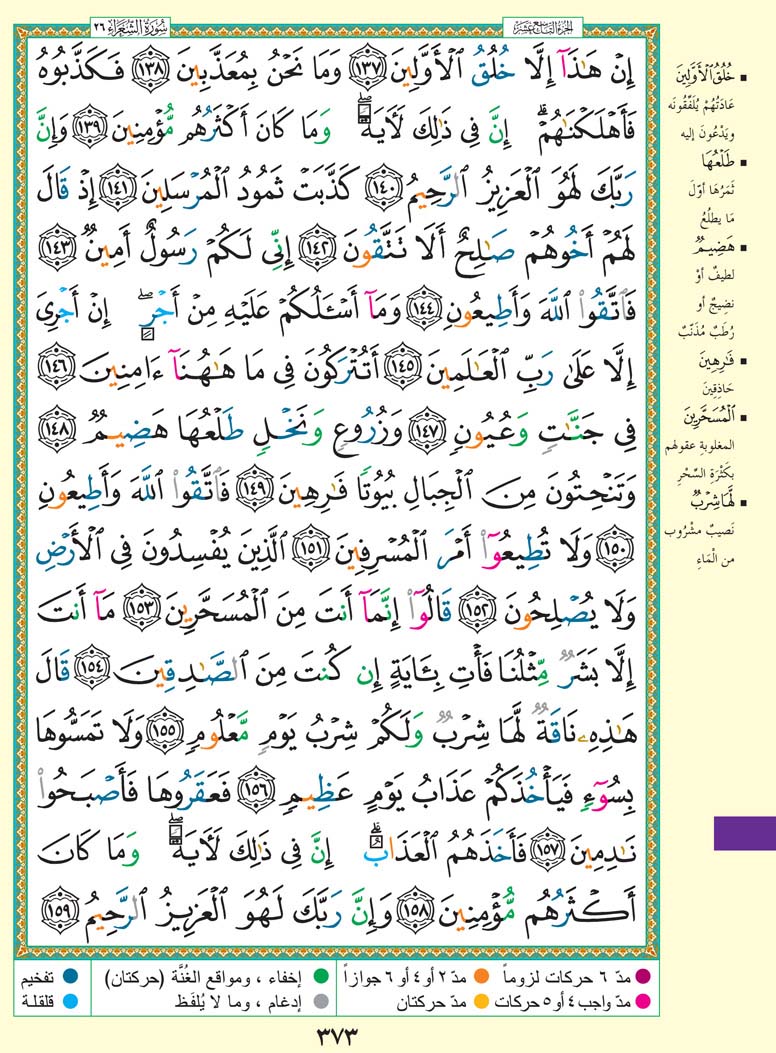 سُورَةُ الشُّعَرَاءِ ٢٦
الجُزْءُ التَّاسِعَ عَشَرَ
إِنْ هَٰذَآ إِلَّا خُلُقُ ٱلْأَوَّلِينَ ١٣٧ وَمَا نَحْنُ بِمُعَذَّبِينَ ١٣٨ فَكَذَّبُوهُ
فَأَهْلَكْنَٰهُمْ ۗ إِنَّ فِى ذَٰلِكَ لَأٓيَةً ۖ وَمَا كَانَ أَكْثَرُهُم مُّؤْمِنِينَ ١٣٩ وَإِنَّ
رَبَّكَ لَهُوَ ٱلْعَزِيزُ ٱلرَّحِيمُ ١٤٠ كَذَّبَتْ ثَمُودُ ٱلْمُرْسَلِينَ ١٤١ إِذْ قَالَ
لَهُمْ أَخُوهُمْ صَٰلِحٌ أَلَا تَتَّقُونَ ١٤٢ إِنِّى لَكُمْ رَسُولٌ أَمِينٌ ١٤٣
فَٱتَّقُوا۟ ٱللَّهَ وَأَطِيعُونِ ١٤٤ وَمَآ أَسْـَٔلُكُمْ عَلَيْهِ مِنْ أَجْرٍ ۖ إِنْ أَجْرِىَ
إِلَّا عَلَىٰ رَبِّ ٱلْعَٰلَمِينَ ١٤٥ أَتُتْرَكُونَ فِى مَا هَٰهُنَآ ءَامِنِينَ ١٤٦
فِى جَنَّٰتٍ وَعُيُونٍ ١٤٧ وَزُرُوعٍ وَنَخْلٍ طَلْعُهَا هَضِيمٌ ١٤٨
وَتَنْحِتُونَ مِنَ ٱلْجِبَالِ بُيُوتًا فَٰرِهِينَ ١٤٩ فَٱتَّقُوا۟ ٱللَّهَ وَأَطِيعُونِ
١٥٠ وَلَا تُطِيعُوٓا۟ أَمْرَ ٱلْمُسْرِفِينَ ١٥١ ٱلَّذِينَ يُفْسِدُونَ فِى ٱلْأَرْضِ
وَلَا يُصْلِحُونَ ١٥٢ قَالُوٓا۟ إِنَّمَآ أَنتَ مِنَ ٱلْمُسَحَّرِينَ ١٥٣ مَآ أَنتَ
إِلَّا بَشَرٌ مِّثْلُنَا فَأْتِ بِـَٔايَةٍ إِن كُنتَ مِنَ ٱلصَّٰدِقِينَ ١٥٤ قَالَ
هَٰذِهِۦ نَاقَةٌ لَّهَا شِرْبٌ وَلَكُمْ شِرْبُ يَوْمٍ مَّعْلُومٍ ١٥٥ وَلَا تَمَسُّوهَا
بِسُوٓءٍ فَيَأْخُذَكُمْ عَذَابُ يَوْمٍ عَظِيمٍ ١٥٦ فَعَقَرُوهَا فَأَصْبَحُوا۟
نَٰدِمِينَ ١٥٧ فَأَخَذَهُمُ ٱلْعَذَابُ ۗ إِنَّ فِى ذَٰلِكَ لَأٓيَةً ۖ وَمَا كَانَ
أَكْثَرُهُم مُّؤْمِنِينَ ١٥٨ وَإِنَّ رَبَّكَ لَهُوَ ٱلْعَزِيزُ ٱلرَّحِيمُ ١٥٩
▪ خُلُقُ ٱلْأَوَّلِينَ
عَادَتُهُمْ يُلَفِّقُونَه
ويَدْعُونَ إليه
▪ طَلْعُهَا
ثَمَرُهَا أوّلَ
مَا يطلُعُ
▪ هَضِيمٌ
لطيفٌ أوْ
نضيجٌ أو
رُطَبٌ مُذَنَّبٌ
▪ فَٰرِهِينَ
حَاذِقِينَ
▪ ٱلْمُسَحَّرِينَ
المغلوبةِ عقولهم
بكَثْرَةِ السِّحْرِ
▪ لَّهَا شِرْبٌ
نَصيبٌ مشْرُوب
من الْمَاءِ
مدّ ٦ حركات لزوماً مدّ ٢ أو ٤ أو ٦ جوازاً إخفاء ، ومواقع الغُنَّة (حركتان) تفخيم
مدّ واجب ٤ أو ٥ حركات مدّ حركتان إدغام ، وما لا يُلفَظ قلقلة
٣٧٣